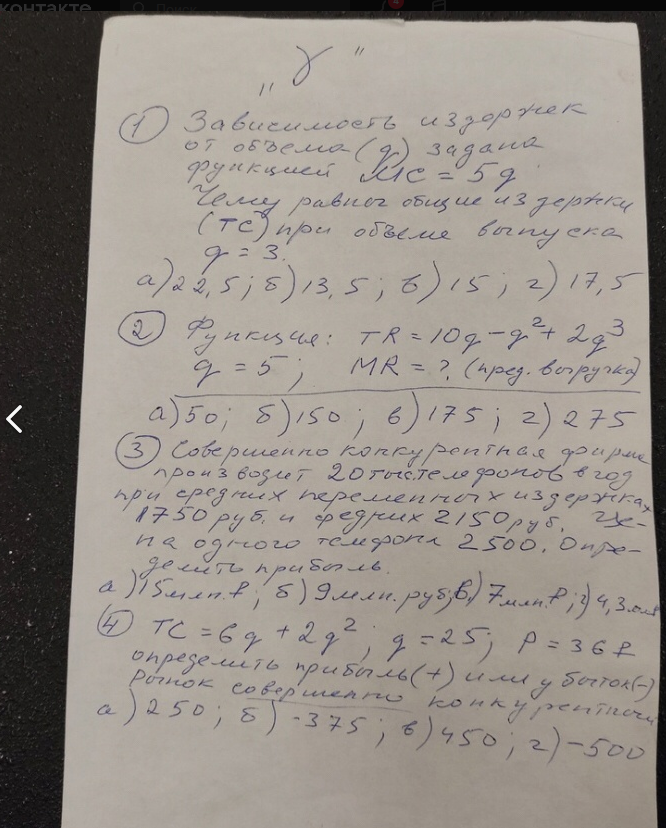 контакте
Поиск
„ γ “
① Зависимость издержек
от объема (q) задана
функцией MC = 5q
Чему равног общие издержки
(TC) при объеме выпуска
q = 3.
а) 22,5; б) 13,5; в) 15; г) 17,5
② Функция: TR = 10q - q² + 2q³
q = 5; MR = ? (пред. выручка)
а) 50; б) 150; в) 175; г) 275
③ Совершенно конкурентная фирма
производит 20 тыс телефонов в год
при средних переменных издержках
1750 руб. и средних 2150 руб. Це-
на одного телефона 2500. Опре-
делить прибыль.
а) 15 млн. ₽; б) 9 млн. руб; в) 7 млн. ₽; г) 4,3 млн
④ TC = 6q + 2q²; q = 25; P = 36 ₽
определить прибыль (+) или убыток (-)
Рынок совершенно конкурентный
а) 250; б) -375; в) 450; г) -500